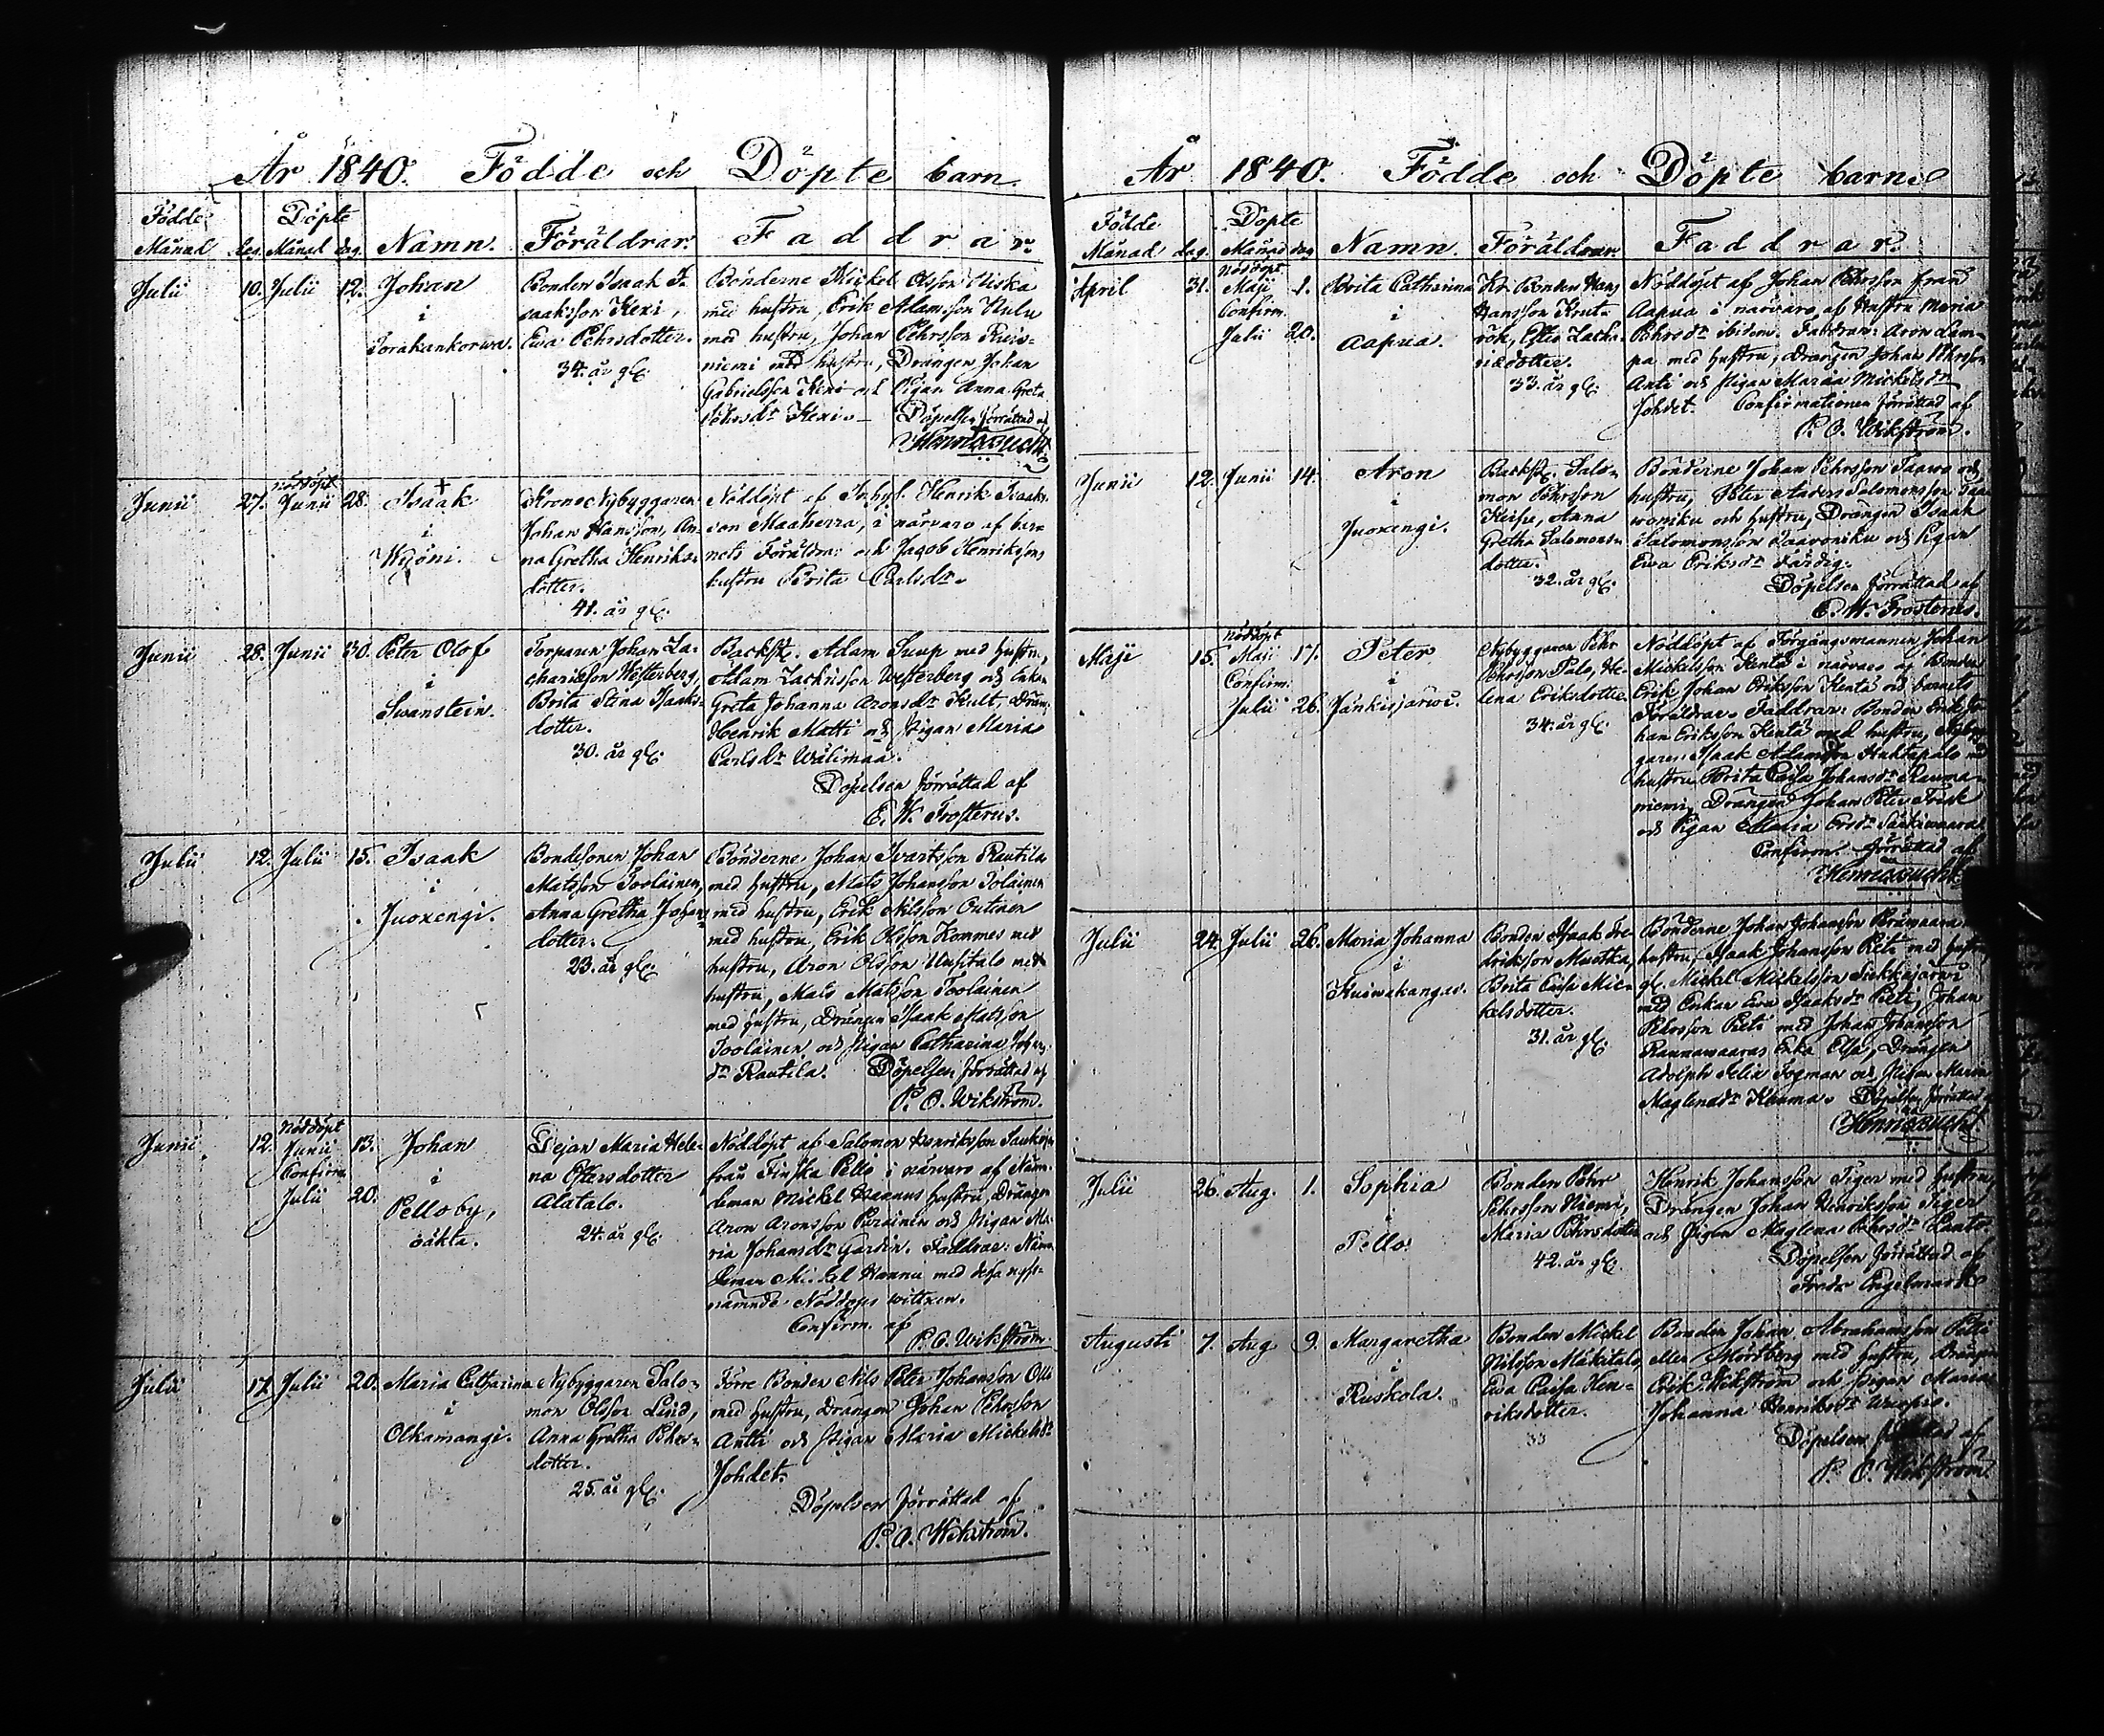 År 1840. Födde och Döpte barn
Födde Döpte
Månad dag. Månad dag. Namn. Föräldrar. Faddrar.
Julii 10. Julii 12. Johan
i
Torakankorwa.
Bonden Isaak I-
saaksson Kexi,
Ewa Pehrsdotter.
34. år gl.
Bönderne Mickel Olsson Niska
med hustru, Erik Adamsson Hulu
med hustru, Johan Pehrsson Kuis-
niemi med hustru, Drängen Johan
Gabrielsson Kexi och Pigan Anna Greta
Pehrsdr Kexi. Döpelsen förrättad af
Junii 27. nöddöpt Junii 28. Isaak
i
Wyöni.
Krono Nybyggaren
Johan Hansson, An-
na Gretha Henriks-
dotter.
41. år gl.
Nöddöpt af Inhys. Henrik Isaaks-
son Maaherra, i närvaro af bar-
nets Föräldrar och Jagob Henrikssons
hustru Brita Carlsdr.
Junii 28. Junii 30. Peter Olof
i
Swanstein.
Torparen Johan Za-
chariesson Westerberg,
Brita Stina Isaaks-
dotter.
30. år gl.
Backst. Adam Suup med hustru,
Adam Zachrisson Westerberg och Enkan
Greta Johanna Aronsdr Hult, Dräng.
Henrik Matti och Pigan Maria
Carlsdr Wälimaa.
Döpelsen förrättad af
E. W. Frosterus.
Julii 12. Julii 15. Isaak
i
Juoxengi.
Bondesonen Johan
Matsson Toolainen,
Anna Gretha Johans-
dotter.
23. år gl.
Bönderne Johan Ivarsson Rautila
med hustru, Mats Johansson Tolainen
med hustru, Erik Nilsson Outinen
med hustru, Erik Olsson Kommes med
hustru, Aron Olsson Uusitalo med
hustru, Mats Matsson Toolainen
med hustru, Drängen Isaak Matsson
Toolainen och Pigan Catharina Johans-
dr Rautila. Döpelsen förrättad af
P. O. Wikström.
Junii 12. Nöddöpt Junii 13. Confirm. Julii 20. Johan
i
Pello by,
oäkta.
Dejan Maria Hele-
na Offersdotter
Alatalo.
24. år gl.
Nöddöpt af Salomon Henriksson
från Finska Pello i närvaro af Näm-
deman Mickel Hannus hustru, Drängen
Aron Aronsson och Pigan Ma-
ria Johansdr Gardin. Faddrar: Näm-
deman Mickel Hannu med desse nyss-
nämnde Nöddops wittnen.
Confirm. af
P. O. Wikström.
Julii 17. Julii 20. Maria Catharina
i
Olkamangi.
Nybyggaren Salo-
mon Olsson Lind,
Anna Gretha Pehrs-
dotter.
25. år gl.
Förre Bonden Nils Peter Johansson Olli
med hustru, Drängen Johan Pehrsson
Antti och Pigan Maria Mickelsdr
Johdet.
Döpelsen förrättad af
P. O. Wikström.
År 1840. Födde och Döpte barn
Födde Döpte
Månad dag. Månad dag Namn. Föräldrar. Faddrar.
April 31. Nöddöpt Maji 1. Confirm. Julii 20. Brita Catharina
i
Aapua.
Kr. Bonden Hans
Hansson Krut-
rök, Lisa Zacha-
riædotter.
33. år gl.
Nöddöpt af Johan Pehrsson från
Aapua i närvaro af Hustru Maria
Pehrsdr ibidem. Faddrar: Aron Lam-
pa med hustru, Drängen Johan Pehrsson
Anti och Pigan Maria Mickelsdr
Johdet. Confirmationen förrättad af
P. O. Wikström.
Junii 12. Junii 14. Aron
i
Juoxengi.
Backst. Salo-
mon Pehrsson
Keisu, Anna
Gretha Salomons-
dotter.
32. år gl.
Bönderne Johan Pehrsson Taawo och
hustru, Peter Anders Salomonsson Taa-
woniku och hustru, Drängen Isaak
Salomonsson Taavoniku och Pigan
Ewa Eriksdr Färdig.
Döpelsen förrättad af
E. W. Frosterus.
Maji 15. Nöddöpt Maji 17. Confirm. Julii 26. Peter
i
Jänkisjärwi.
Nybyggaren Pehr
Pehrsson Palo, He-
lena Eriksdotter.
34. år gl.
Nöddöpt af Förgångsmannen Johan
Mickelsson Kentä i närvaro af Bonden
Erik Johan Eriksson Kentä och barnets
Föräldrar. Faddrar: Bonden Erik Jo-
han Eriksson Kentä med hustru, Nybyg-
garen Isaak Adamsson Huhtapalo med
hustru Brita Caisa Johansdr Rauma-
niemi, Drängen Johan Peter Frisk
och Pigan Maria Ersdr Säükiwaara
Confirm. förrättad af
Julii 24. Julii 26. Maria Johanna
i
Kuiwakangas.
Bonden Isaak Fre-
driksson Muotka,
Brita Caisa Mic-
kelsdotter.
31. år gl.
Bönderne Johan Johansson
hustru, Isaak Johansson Pieti med hustru
gl. Mickel Mickelsson Sukkajärwi
med Enkan Ewa Isaaksdr Pieti, Johan
Pehrsson Pieti med Johan Johansson
Rannawaaras Enka Elsa, Drängen
Adolph Felix Fogman och Pigan Maria
Maglenadr Kauma. Döpelsen förrättad af
Julii 26. Aug. 1. Sophia
i
Pello.
Bonden Pehr
Pehrsson Niemi,
Maria Pehrsdotter
42. år gl.
Henrik Johansson Tiger med hustru,
Drängen Johan Henriksson Tiger
och Pigan Maglena Pehrsdr Lanto
Döpelsen förrättad af
Fredr. Engelmark
Augusti 7. Aug. 9. Margaretha
i
Ruskola.
Bonden Mickel
Nilsson Mäkitalo
Ewa Caisa Hen-
riksdotter.
33
Bonden Johan Abrahamsson Pelli
eller Mörtberg med hustru, Drängen
Erik Wikström och Pigan Maria
Johanna Henriksdr
Döpelsen förrättad af
P. O. Wikström.